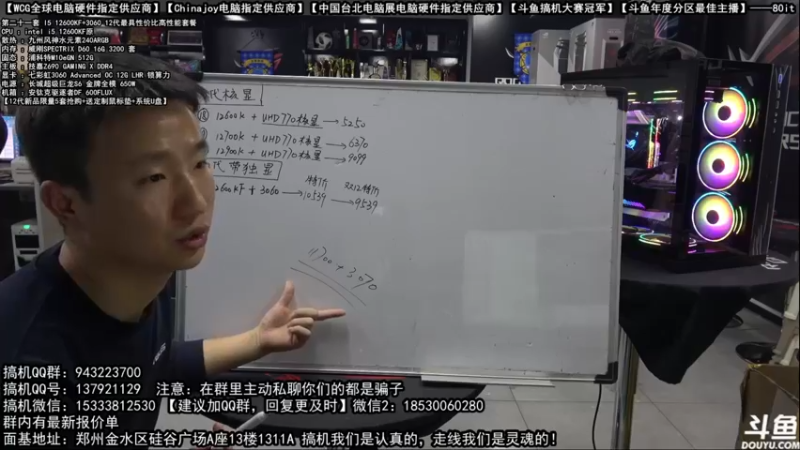 【WCG全球电脑硬件指定供应商】【Chinajoy电脑指定供应商】【中国台北电脑展电脑硬件指定供应商】【斗鱼搞机大赛冠军】【斗鱼年度分区最佳主播】——80it
第二十一套 I5 12600KF+3060 12代最具性价比高性能套餐
CPU：intel i5 12600KF原
散热：九州风神水元素240ARGB
内存：威刚SPECTRIX D60 16G 3200 套
固态：浦科特M10eGN 512G
主板：技嘉Z690 GAMING X DDR4
显卡：七彩虹3060 Advanced OC 12G LHR 锁算力
电源：长城超级巨龙S6 金牌全模 650W
机箱：安钛克驱逐者DF 600FLUX
【12代新品限量5套抢购+送定制鼠标垫+系统U盘】
代核显
12600K + UHD770核显 → 5250
12700K + UHD770核显 → 6370
12900K + UHD770核显 → 9099
代带独显
2600KF + 3060 → 特价 10539 → 双12特价 9539
11700 + 3070
搞机QQ群：943223700
搞机QQ号：137921129 注意：在群里主动私聊你们的都是骗子
搞机微信：15333812530【建议加QQ群，回复更及时】微信2：18530060280
群内有最新报价单
面基地址：郑州金水区硅谷广场A座13楼1311A 搞机我们是认真的，走线我们是灵魂的！
斗鱼
DOUYU.COM